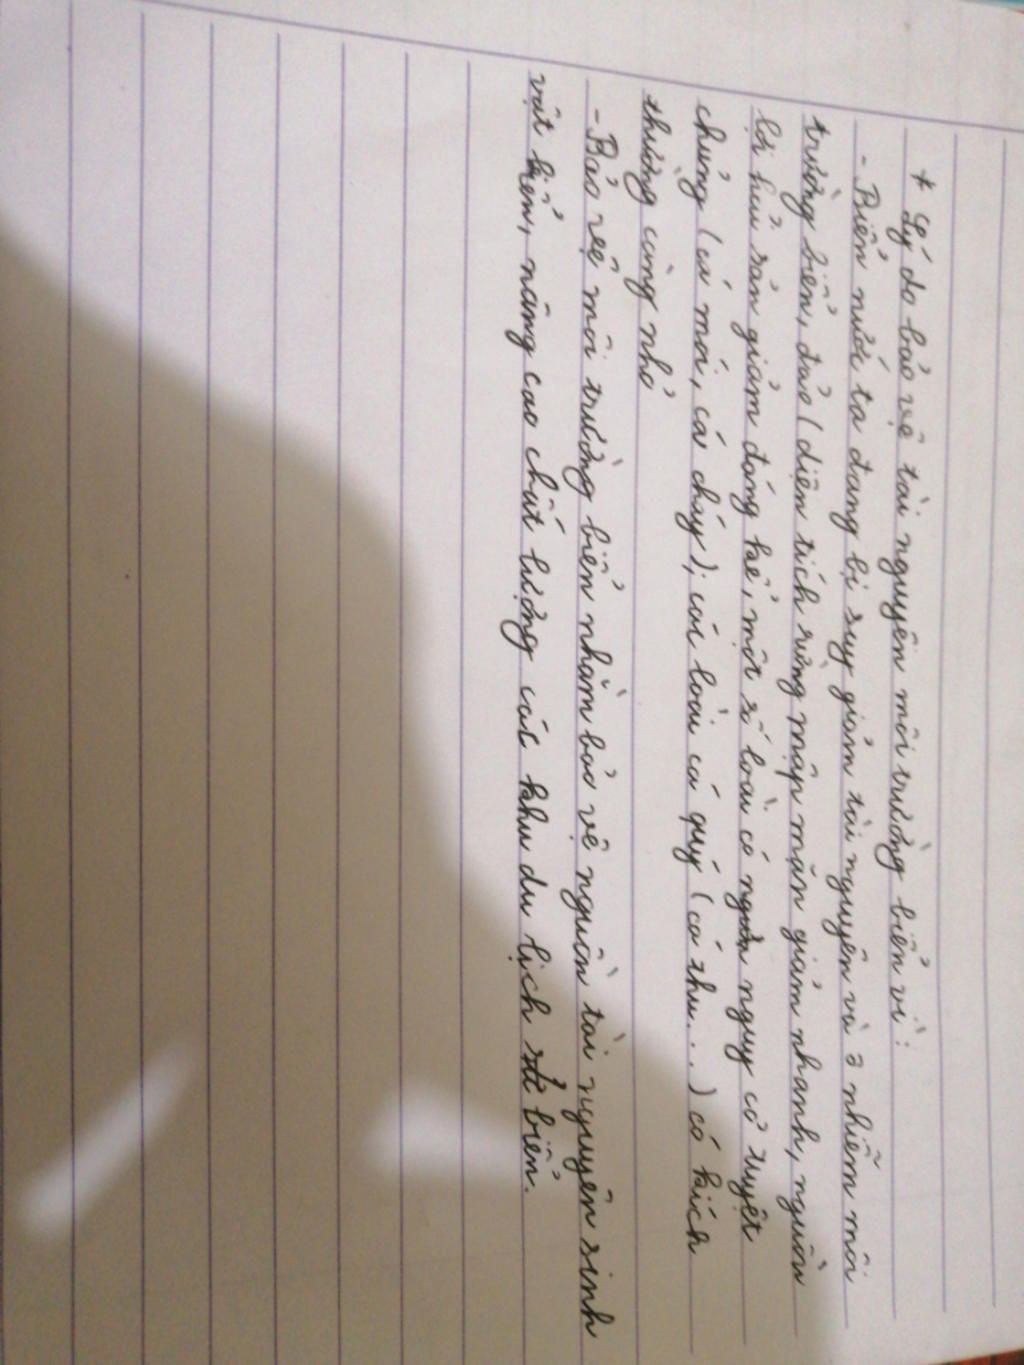 * Lý do bảo vệ tài nguyên môi trường biển vì:
- Biển nước ta đang bị suy giảm tài nguyên và ô nhiễm môi
trường biển, đảo (diện tích rừng mập mặn giảm nhanh, nguồn
lợi hải sản giảm đáng kể, một số loài có nguy cơ tuyệt
chủng (cá mòi, cá cháy); các loài cá quý (cá thu...) có kích
thường càng nhỏ
- Bảo vệ môi trường biển nhằm bảo vệ nguồn tài nguyên sinh
vật biển, nâng cao chất lượng các khu du lịch biển.